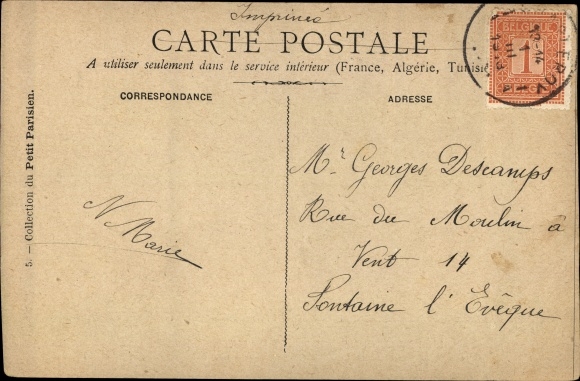 Imprimés
CARTE POSTALE
A utiliser seulement dans le service intérieur (France, Algérie, Tunisie
CORRESPONDANCE
ADRESSE
5. — Collection du Petit Parisien.
N Marie
Mr Georges Descamps
Rue du Moulin à
Vent 14
Fontaine l'Evêque
BELGIQUE
1